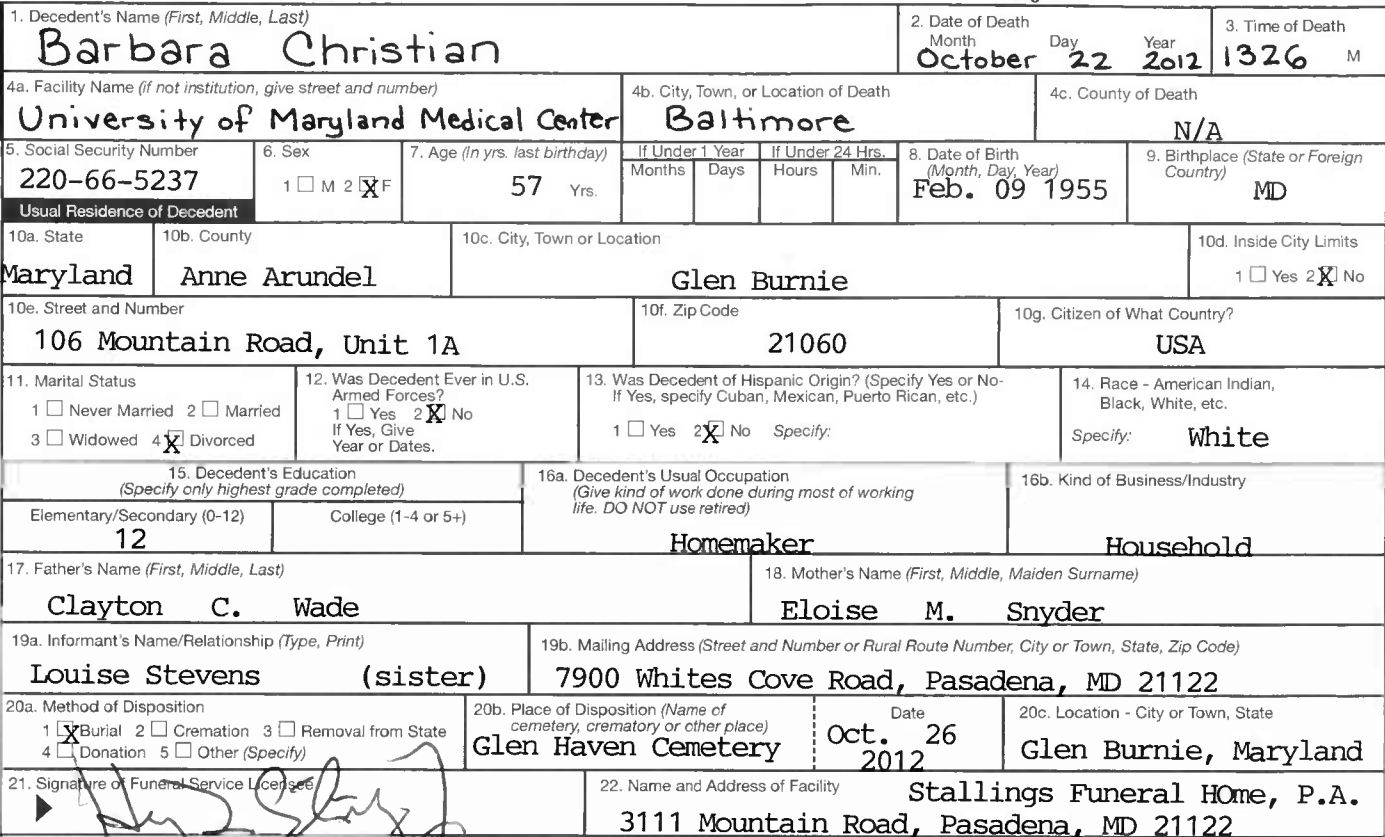 1. Decedent's Name (First, Middle, Last)
Barbara Christian
2. Date of Death
Month Day Year
October 22 2012
3. Time of Death
1326 M
4a. Facility Name (if not institution, give street and number)
University of Maryland Medical Center
4b. City, Town, or Location of Death
Baltimore
4c. County of Death
N/A
5. Social Security Number
220-66-5237
6. Sex
1 ☐ M 2 ☒ F
7. Age (In yrs. last birthday)
57 Yrs.
If Under 1 Year
Months Days
If Under 24 Hrs.
Hours Min.
8. Date of Birth
(Month, Day, Year)
Feb. 09 1955
9. Birthplace (State or Foreign
Country)
MD
Usual Residence of Decedent
10a. State
Maryland
10b. County
Anne Arundel
10c. City, Town or Location
Glen Burnie
10d. Inside City Limits
1 ☐ Yes 2 ☒ No
10e. Street and Number
106 Mountain Road, Unit 1A
10f. Zip Code
21060
10g. Citizen of What Country?
USA
11. Marital Status
1 ☐ Never Married 2 ☐ Married
3 ☐ Widowed 4 ☒ Divorced
12. Was Decedent Ever in U.S.
Armed Forces?
1 ☐ Yes 2 ☒ No
If Yes, Give
Year or Dates.
13. Was Decedent of Hispanic Origin? (Specify Yes or No-
If Yes, specify Cuban, Mexican, Puerto Rican, etc.)
1 ☐ Yes 2 ☒ No Specify:
14. Race - American Indian,
Black, White, etc.
Specify: White
15. Decedent's Education
(Specify only highest grade completed)
Elementary/Secondary (0-12)
12
College (1-4 or 5+)
16a. Decedent's Usual Occupation
(Give kind of work done during most of working
life. DO NOT use retired)
Homemaker
16b. Kind of Business/Industry
Household
17. Father's Name (First, Middle, Last)
Clayton C. Wade
18. Mother's Name (First, Middle, Maiden Surname)
Eloise M. Snyder
19a. Informant's Name/Relationship (Type, Print)
Louise Stevens (sister)
19b. Mailing Address (Street and Number or Rural Route Number, City or Town, State, Zip Code)
7900 Whites Cove Road, Pasadena, MD 21122
20a. Method of Disposition
1 ☒ Burial 2 ☐ Cremation 3 ☐ Removal from State
4 ☐ Donation 5 ☐ Other (Specify)
20b. Place of Disposition (Name of
cemetery, crematory or other place)
Glen Haven Cemetery
Date
Oct. 26
2012
20c. Location - City or Town, State
Glen Burnie, Maryland
21. Signature of Funeral Service Licensee
22. Name and Address of Facility
Stallings Funeral HOme, P.A.
3111 Mountain Road, Pasadena, MD 21122